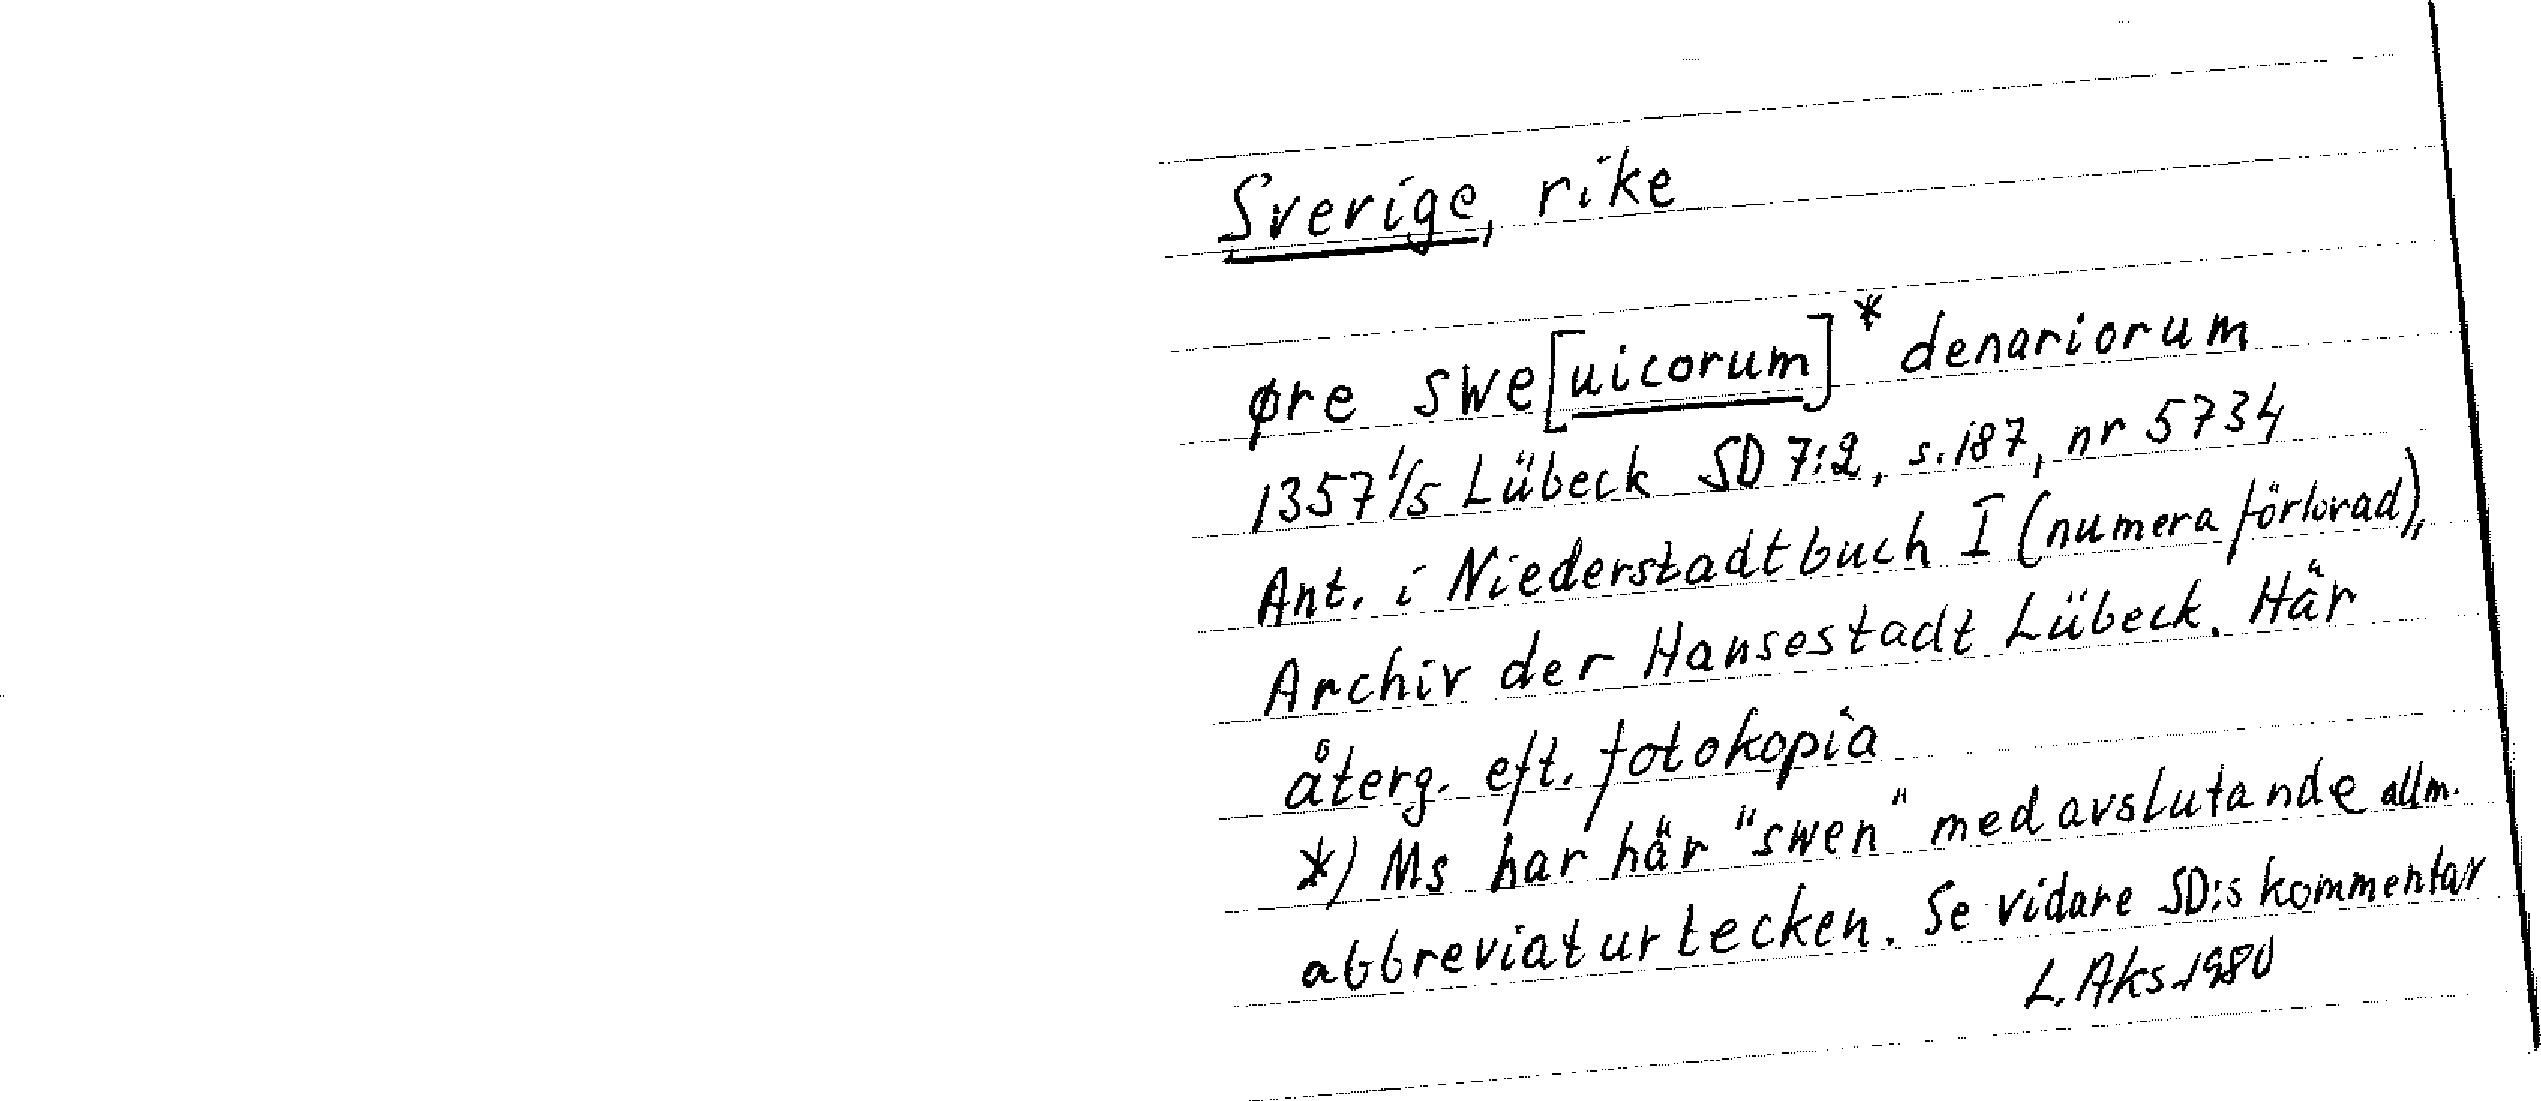 Sverige, rike
øre swe[uicorum]* denariorum
1357 1/5 Lübeck SD 7:2, s. 187, nr 5734
Ant. i Niederstadtbuch I (numera förlorad),
Archiv der Hansestadt Lübeck. Här
återg. eft. fotokopia
*) Ms har här "swen" med avslutande allm.
abbreviaturtecken. Se vidare SD:s kommentar
L. Aks. 1980